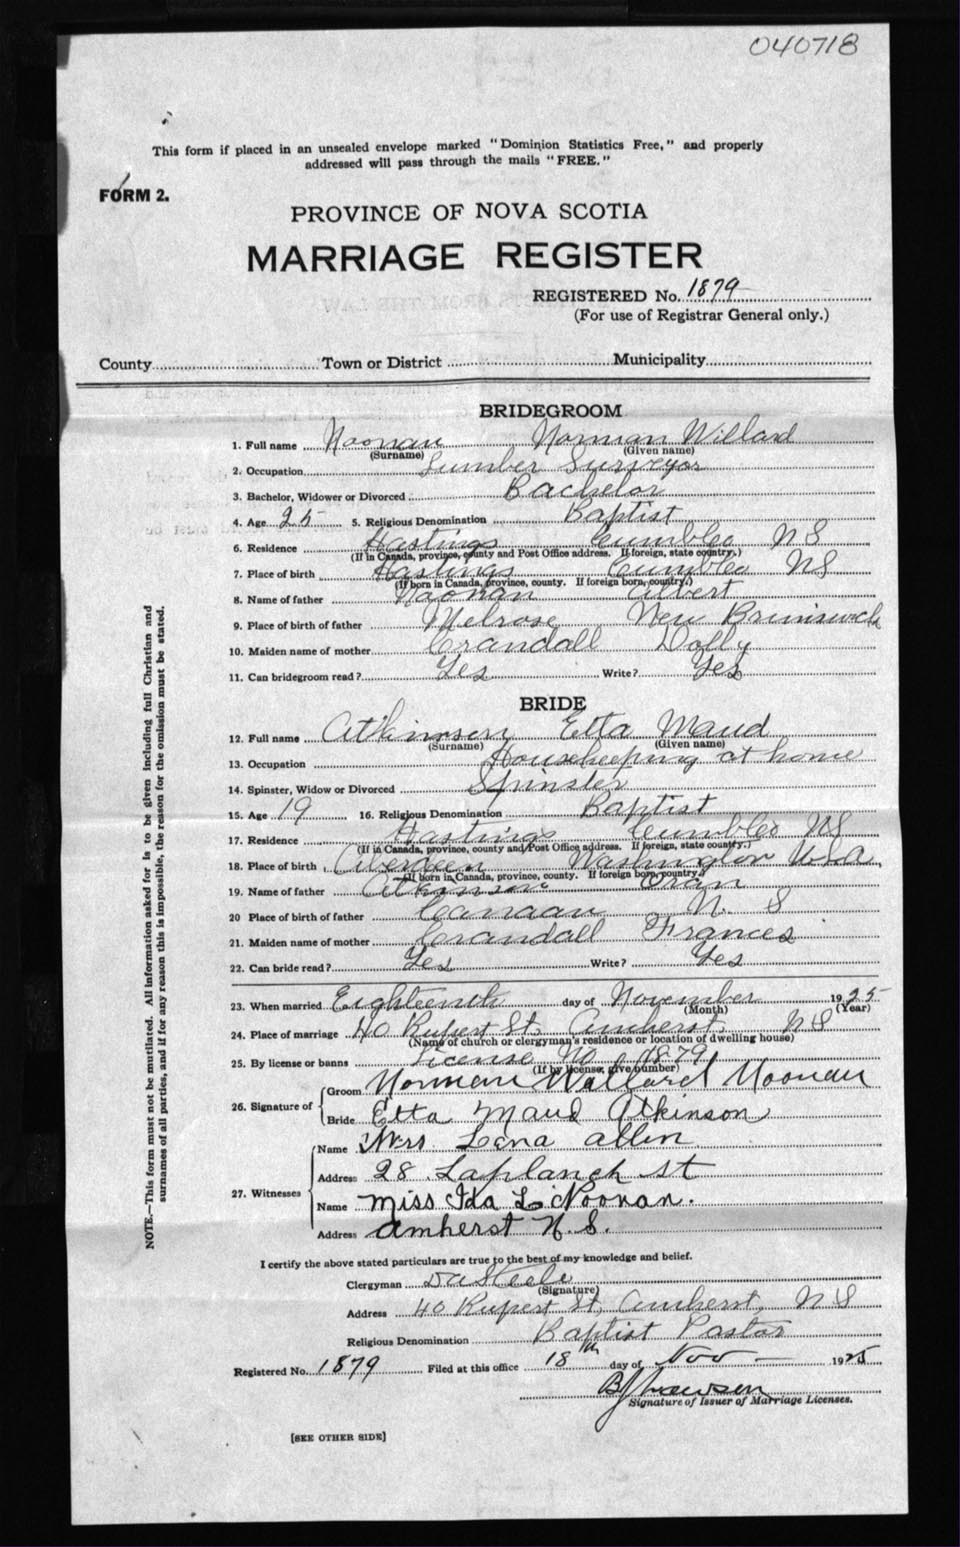 040718
This form if placed in an unsealed envelope marked "Dominion Statistics Free," and properly
addressed will pass through the mails "FREE."
FORM 2.
PROVINCE OF NOVA SCOTIA
MARRIAGE REGISTER
REGISTERED No. 1879
(For use of Registrar General only.)
County Town or District Municipality
BRIDEGROOM
1. Full name Noonan Norman Willard
(Surname) (Given name)
2. Occupation Lumber Surveyor
3. Bachelor, Widower or Divorced Bachelor
4. Age 25 5. Religious Denomination Baptist
6. Residence Hastings Cumb Co N S
(If in Canada, province, county and Post Office address. If foreign, state country.)
7. Place of birth Hastings Cumb Co NS
(If born in Canada, province, county. If foreign born, country.)
8. Name of father Noonan Albert
9. Place of birth of father Melrose New Brunswick
10. Maiden name of mother Crandall Dolly
11. Can bridegroom read? Yes Write? Yes
BRIDE
12. Full name Atkinson Etta Maud
(Surname) (Given name)
13. Occupation Housekeeping at home
14. Spinster, Widow or Divorced Spinster
15. Age 19 16. Religious Denomination Baptist
17. Residence Hastings Cumb Co NS
(If in Canada, province, county and Post Office address. If foreign, state country.)
18. Place of birth Aberdeen Washington U.S.A.
(If born in Canada, province, county. If foreign born, country.)
19. Name of father Atkinson Oran
20 Place of birth of father Canaan N. S
21. Maiden name of mother Crandall Frances
22. Can bride read? Yes Write? Yes
23. When married Eighteenth day of November 1925
(Month) (Year)
24. Place of marriage 40 Rupert St, Amherst, N S
(Name of church or clergyman's residence or location of dwelling house)
25. By license or banns License No 1879
(If by license, give number)
26. Signature of Groom Norman Willard Noonan
Bride Etta Maud Atkinson
27. Witnesses Name Mrs Lena Allen
Address 28 Laplanch St
Name Miss Ida L Noonan.
Address Amherst N. S.
I certify the above stated particulars are true to the best of my knowledge and belief.
Clergyman D A Steele
(Signature)
Address 40 Rupert St, Amherst, N S
Religious Denomination Baptist Pastor
Registered No. 1879 Filed at this office 18th day of Nov 1925
Signature of Issuer of Marriage Licenses.
[SEE OTHER SIDE]
NOTE.—This form must not be mutilated. All information asked for is to be given including full Christian and
surnames of all parties, and if for any reason this is impossible, the reason for the omission must be stated.